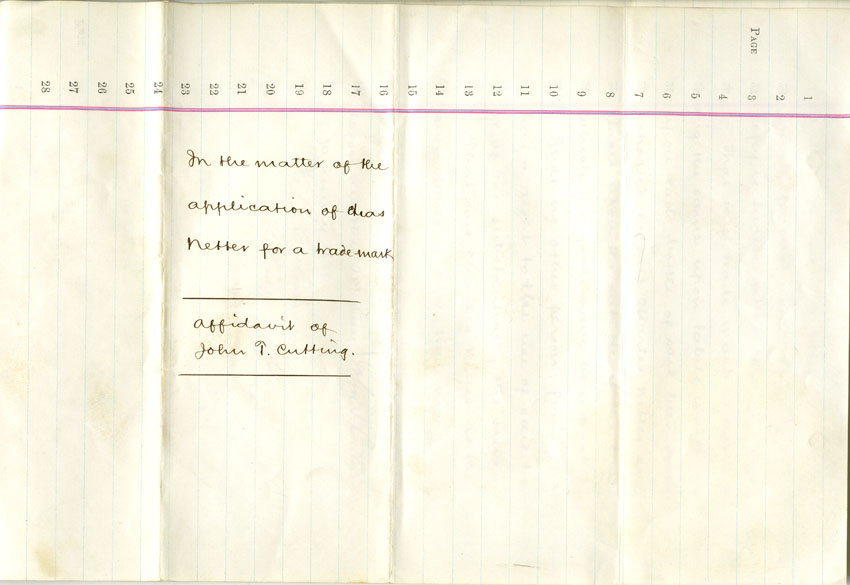 PAGE
1
2
3
4
5
6
7
8
9
10
11
12
13
14
15
16
17
18
19
20
21
22
23
24
25
26
27
28
In the matter of the
application of Chas
Netter for a trade mark
Affidavit of
John T. Cutting.